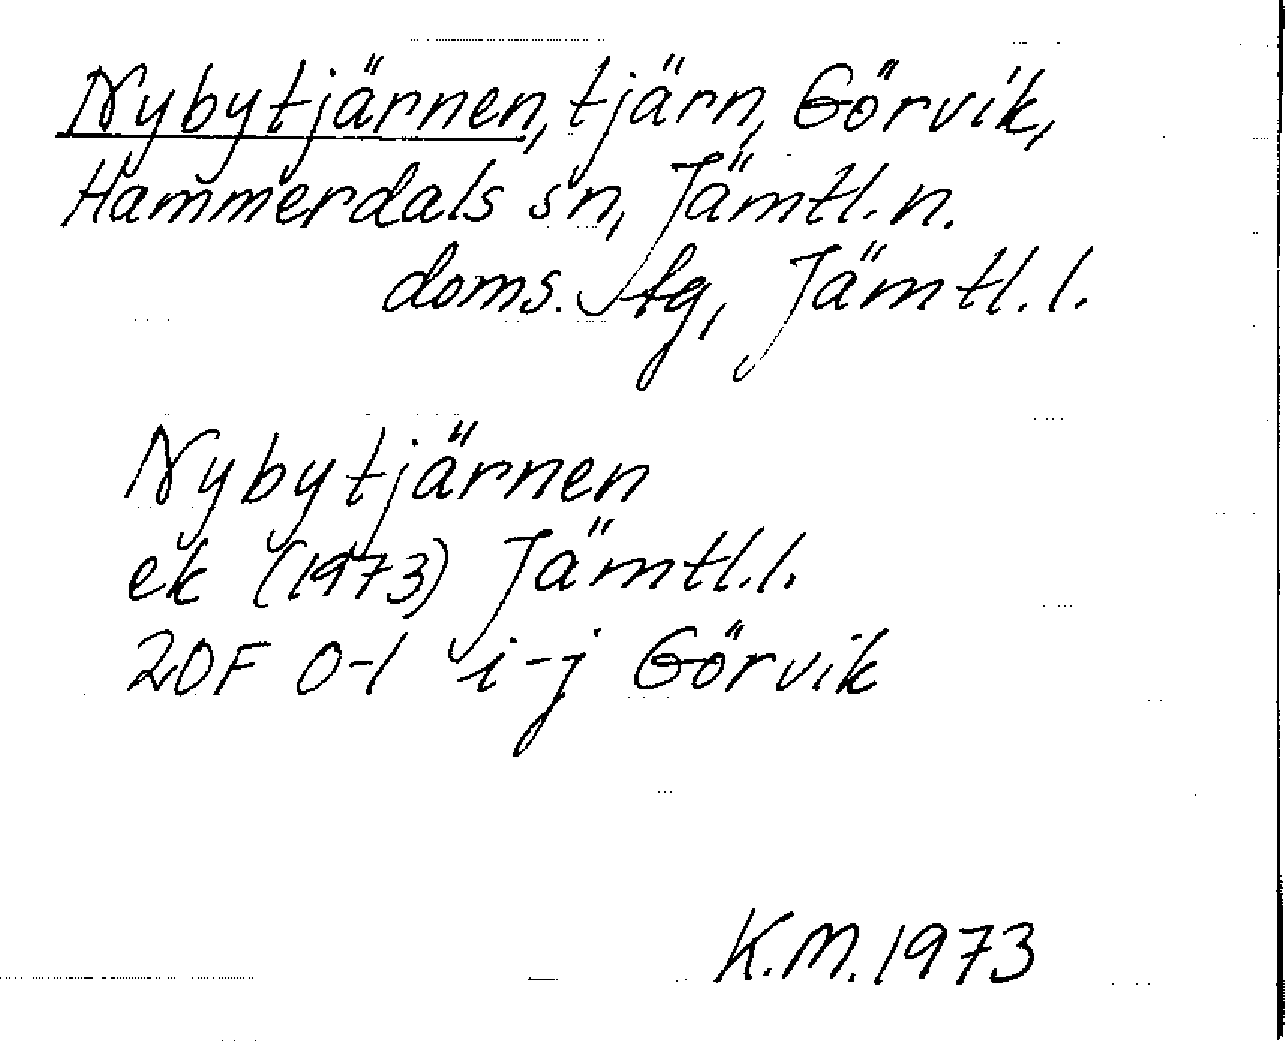 Nybytjärnen, tjärn, Görvik,
Hammerdals sn, Jämtl. n.
doms. tg, Jämtl. l.
Nybytjärnen
ek (1973) Jämtl. l.
20F 0-1 i-j Görvik
K.M. 1973